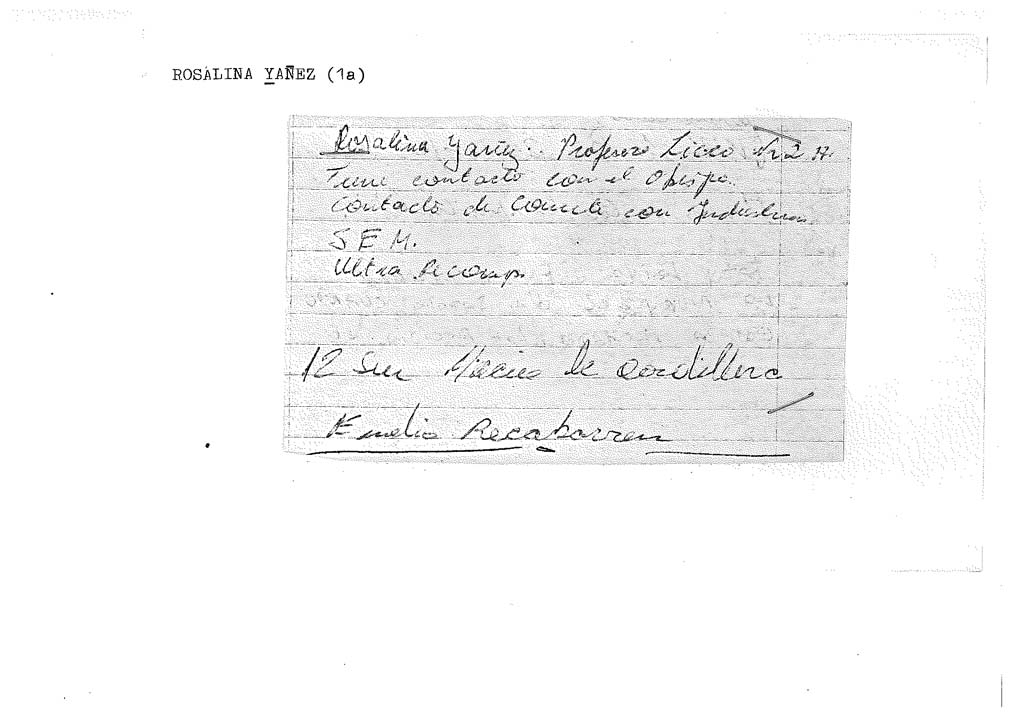 ROSALINA YAÑEZ (1a)
Rosalina Yañez. Profesora Liceo Nr 2 H.
Tiene contacto con el Obispo.
Contacto de con
S E M.
Ultra
12 Sur de cordillera
Emelia Recabarren